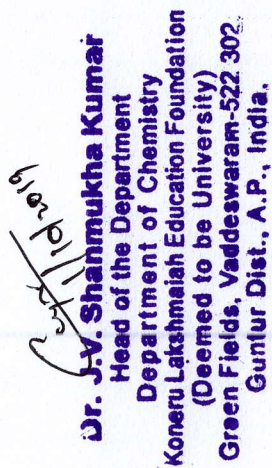 11/10/2019
Dr. J.V Shanmukha Kumar
Head of the Department
Department of Chemistry
Koneru Lakshmaiah Education Foundation
(Deemed to be University)
Green Fields, Vaddeswaram-522 302
Guntur Dist., A.P., India.